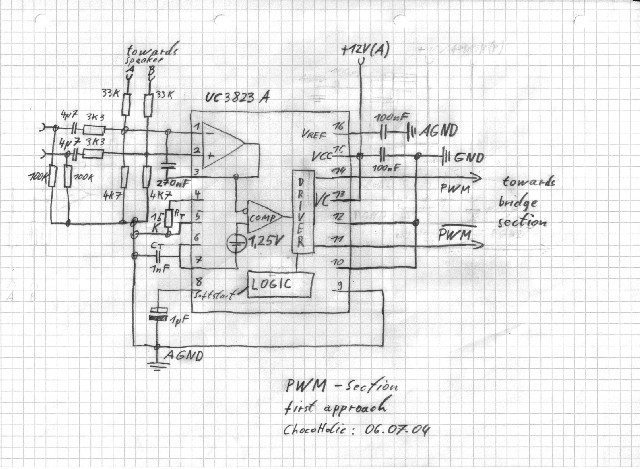 towards
speaker
A B
+12V(A)
33K 33K
UC3823A
4µ7 3K3
1
16
VREF
100nF
AGND
4µ7 3K3
2
15
VCC
100nF
GND
3
14
PWM
100K 100K
4K7 4K7
270nF
DRIVER
VC
13
towards
bridge
section
4
15K
RT
5
COMP
12
6
1,25V
11
PWM
CT
1nF
7
10
8
Softstart
LOGIC
9
1µF
AGND
PWM - Section
first approach
ChocoHolic: 06.07.04